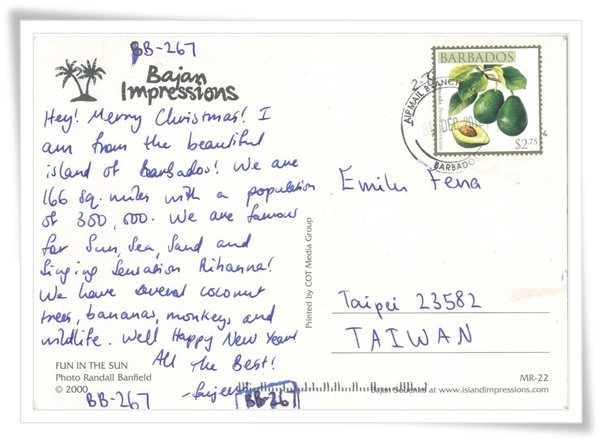 BB-267
Bajan
Impressions
Hey! Merry Christmas! I
am from the beautiful
island of Barbados! We are
166 sq. miles with a population
of 300,000. We are famous
for Sun, Sea, Sand and
Singing Sensation Rihanna!
We have several coconut
trees, bananas, monkeys and
wildlife. Well Happy New Year!
All the Best!
FUN IN THE SUN
Photo Randall Banfield
© 2000
BB-267
BB-267
Printed by COT Media Group
BARBADOS
$2.75
AIRMAIL BRANCH
DEC
BARBADOS
Emily Fena
Taipei 23582
TAIWAN
MR-22
Bajan Souvenirs at www.islandimpressions.com